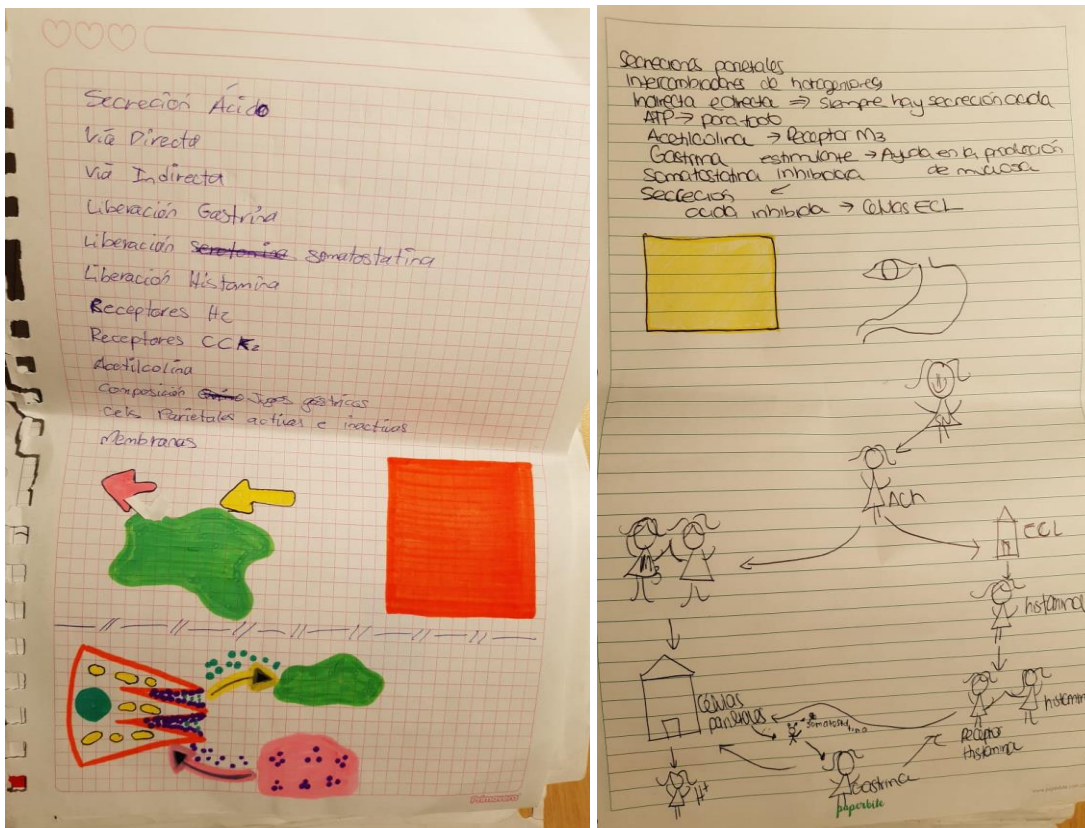 Secreción Ácido
Vía Directa
Vía Indirecta
Liberación Gastrina
Liberación somatostatina
Liberación Histamina
Receptores H2
Receptores CCK2
Acetilcolina
Composición Jugos gástricos
Cels Parietales activas e inactivas
Membranas
Secreciones parietales
Intercambiadores de
Indirecta edirecta ⇒ siempre hay secreción acida
ATP → para todo
Acetilcolina → Receptor M3
Gastrina estimulante → Ayuda en la producción
somatostatina inhibidora de mucosa
secreción
acida inhibida → Células ECL
ACh
ECL
M3
histamina
Células
parietales
somatostatina
histamina
receptor
Histamina
Gastrina
H+
paperbite